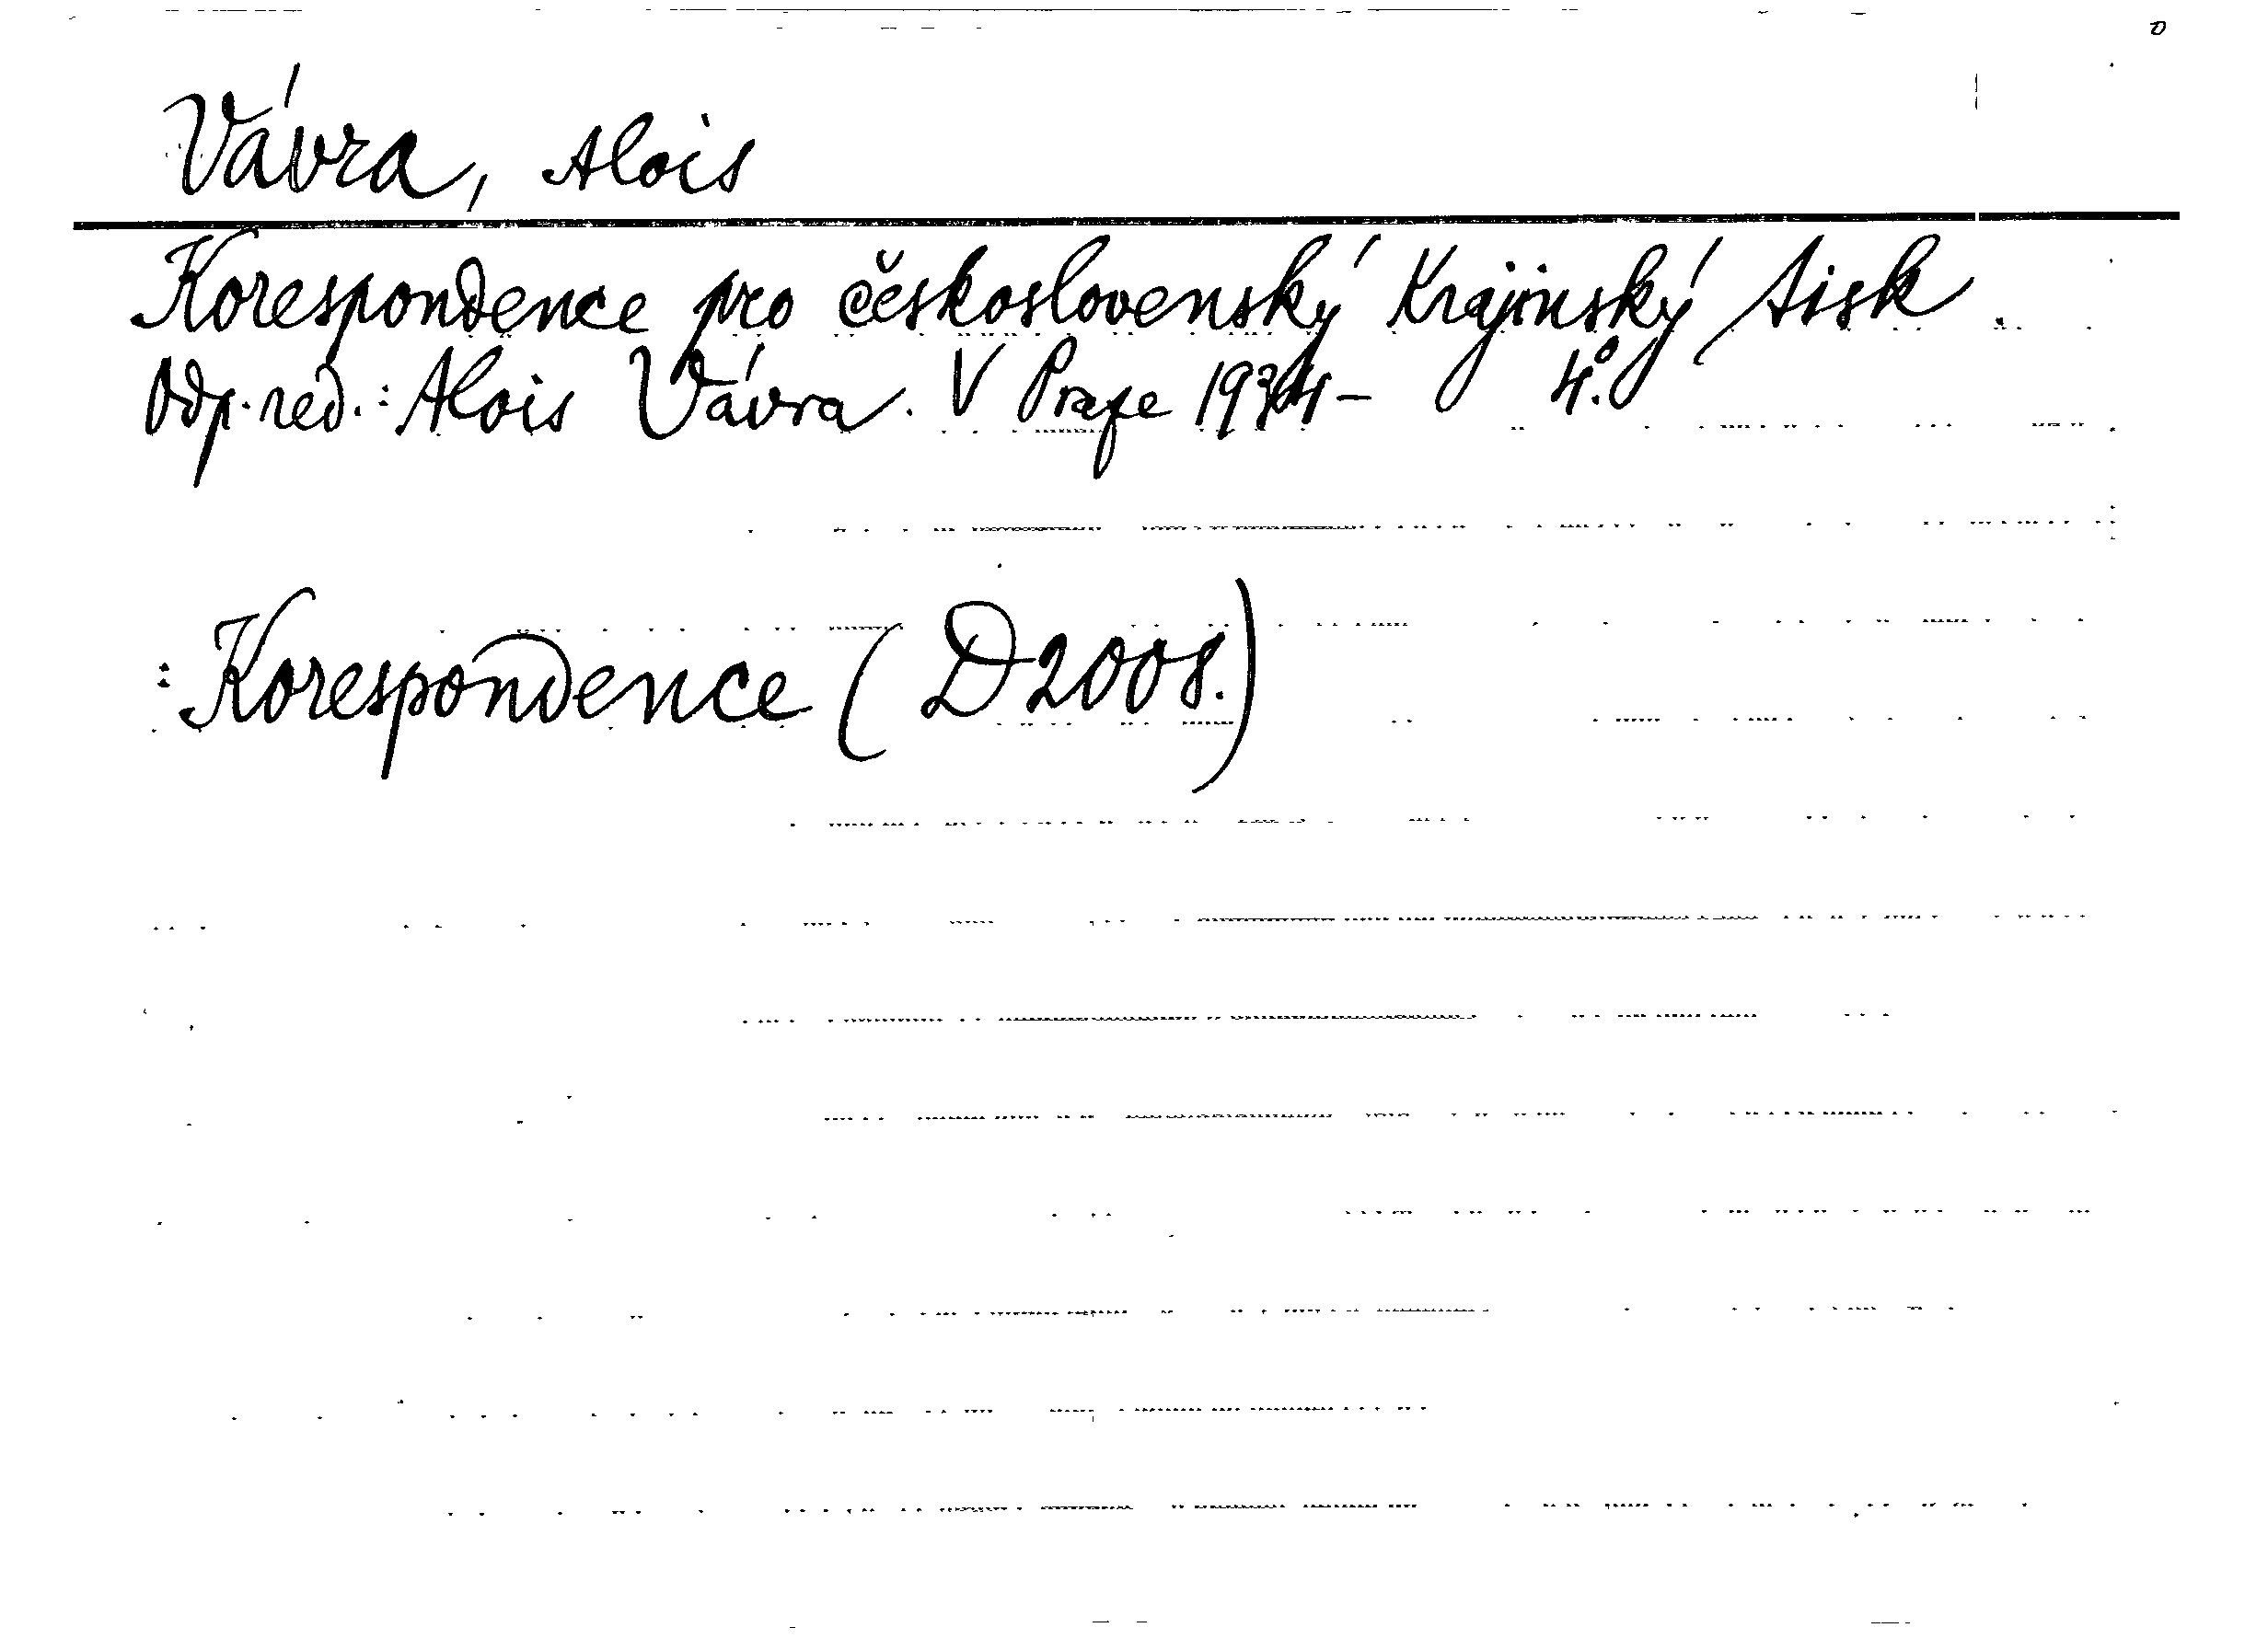 Vávra, Alois
Korespondence pro československý Krajinský tisk.
Odp. red.: Alois Vávra. V Praze 1934- 4.°
: Korespondence (D 2008.)